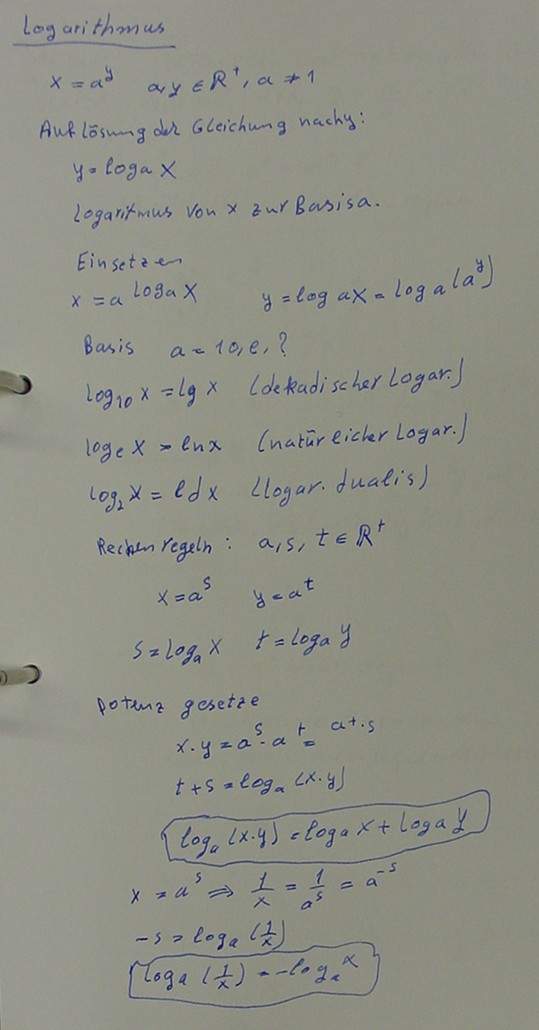 Logarithmus
x = a^y a,y ∈ R⁺, a ≠ 1
Auflösung der Gleichung nach y:
y = log_a x
Logaritmus von x zur Basis a.
Einsetzen
x = a^(log_a x) y = log_a x = log_a (a^y)
Basis a = 10, e, ?
log₁₀ x = lg x (dekadischer Logar.)
log_e x = ln x (natürlicher Logar.)
log₂ x = ld x (logar. dualis)
Rechenregeln: a, s, t ∈ R⁺
x = a^s y = a^t
s = log_a x t = log_a y
Potenz gesetze
x · y = a^s · a^t = a^(t·s)
t + s = log_a (x·y)
log_a (x·y) = log_a x + log_a y
x = a^s ⇒ 1/x = 1/a^s = a^(-s)
-s = log_a (1/x)
log_a (1/x) = -log_a x